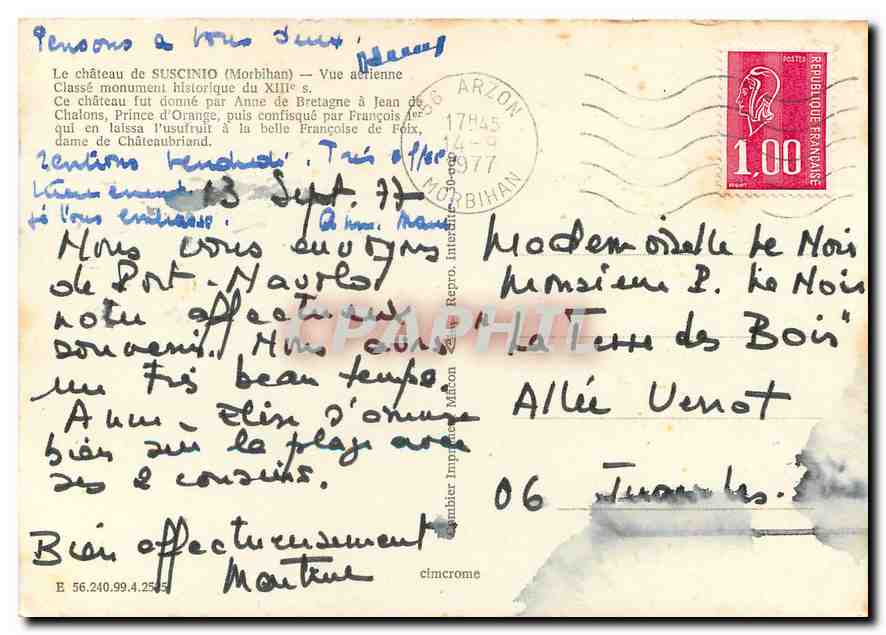 Pensons à vous deux.
Le château de SUSCINIO (Morbihan) — Vue aérienne
Classé monument historique du XIIIe s.
Ce château fut donné par Anne de Bretagne à Jean de
Chalons, Prince d'Orange, puis confisqué par François 1er
qui en laissa l'usufruit à la belle Françoise de Foix,
dame de Châteaubriand.
56 ARZON
17H45
14-9
1977
MORBIHAN
POSTES
REPUBLIQUE FRANÇAISE
1,00
rentrons vendredi. Très
13 Sept. 77
je vous embrasse.
Nous vous envoyons
de Port-Navalo
notre affectueux
souvenir. Nous avons
un très beau temps.
Anne-Elise s'amuse
bien sur la plage avec
ses 2 cousins.
Bien affectueusement
E 56.240.99.4.25
cimcrome
Cambier Imprimeur Macon Repro. Interdite
CPAPHIL
Mademoiselle Le Nois
Monsieur P. Le Nois
"La Terre des Bois"
Allée Verrot
06 Juan les